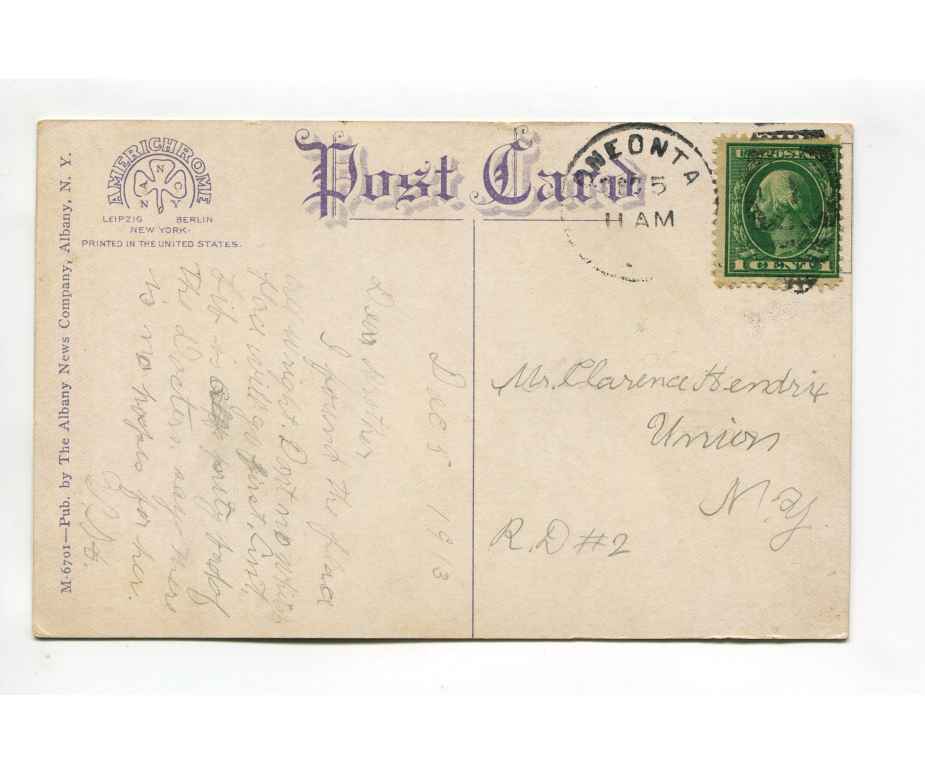 AMERICHROME
ANCNYN
LEIPZIG BERLIN
NEW YORK.
PRINTED IN THE UNITED STATES.
Post Card
ONEONTA
DEC 5
11 AM
U.S. POSTAGE
1 CENT 1
M-6701—Pub. by The Albany News Company, Albany, N. Y.
Dec 5 1913
Dear
I found the place
all right.
will go first.
Lib is today
The doctors say there
is no hopes for her.
Mr. Clarence Hendrix
Union
N.Y.
R.D #2